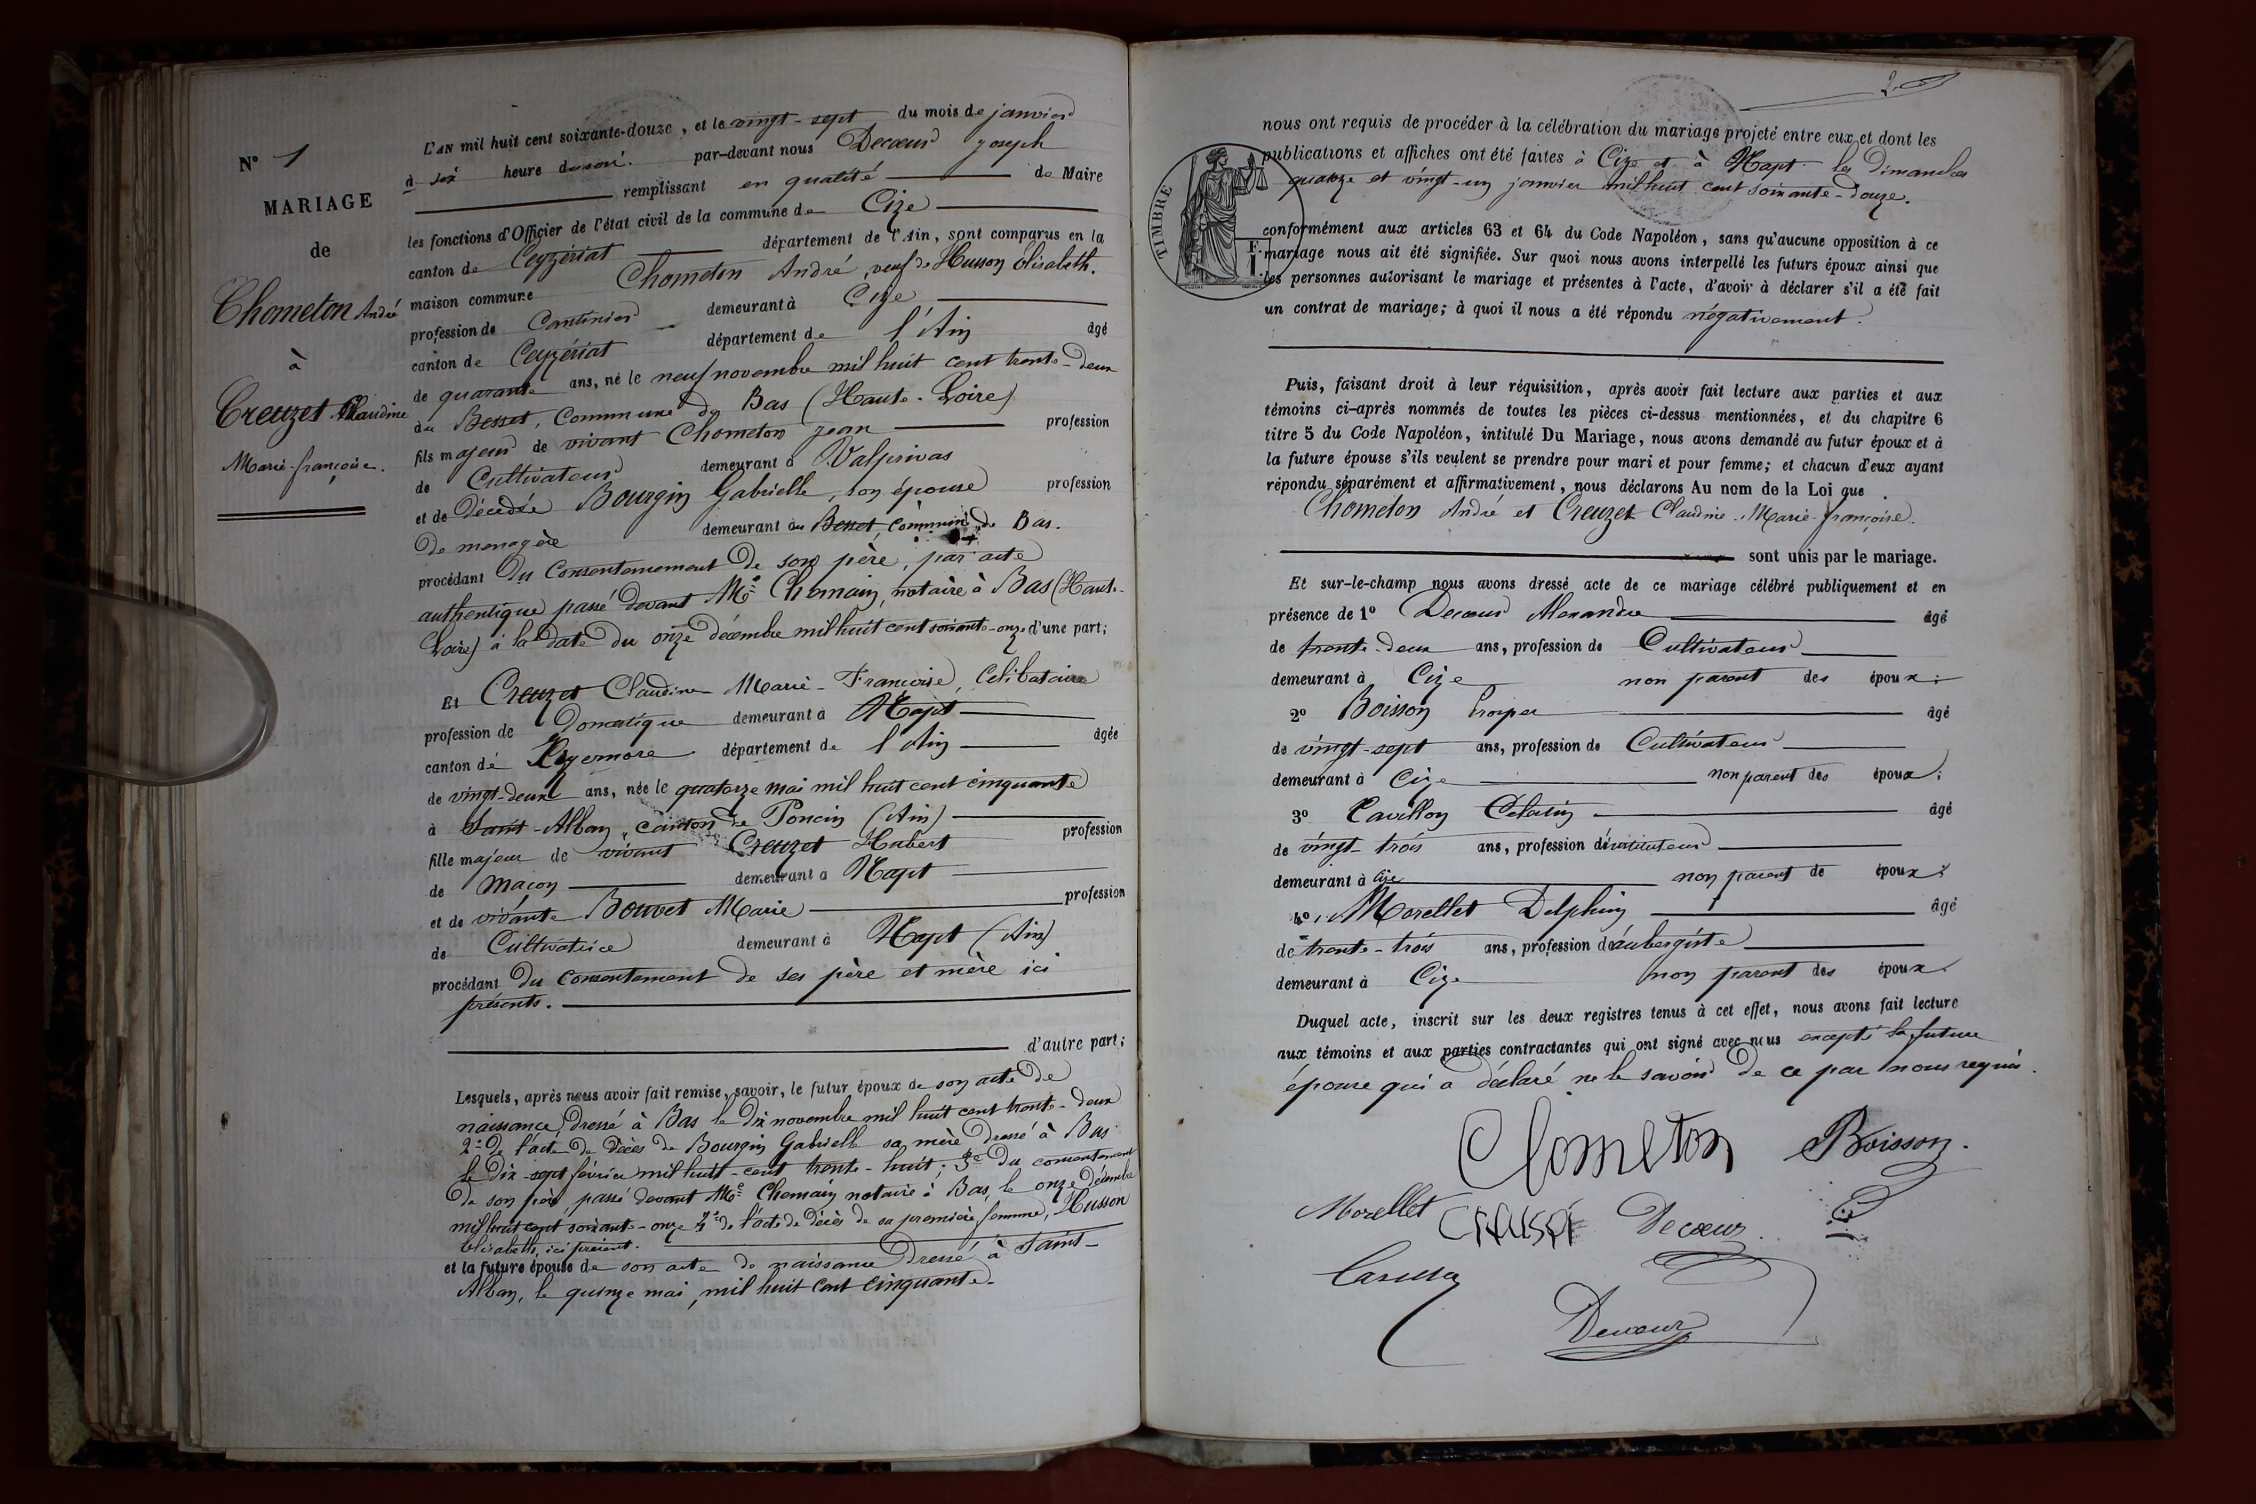 N° 1
MARIAGE
de
Chometon André
à
Creuzet Claudine
Marie-françoise.
L'AN mil huit cent soixante-douze, et le vingt-sept du mois de janvier
à six heure du soir. par-devant nous Decoeur joseph
remplissant en qualité de Maire
les fonctions d'Officier de l'état civil de la commune de Cize
canton de Ceyzériat département de l'Ain, sont comparus en la
maison commune Chometon André, veuf de Husson Elisabeth.
profession de Cantinier demeurant à Cize
canton de Ceyzériat département de l'Ain âgé
de quarante ans, né le neuf novembre mil huit cent trente-deux
au Besset, Commune de Bas (Haute-Loire)
fils majeur de vivant Chometon jean profession
de Cultivateur demeurant à Valprivas
et de décédée Bourgin Gabrielle, son épouse profession
de menagère demeurant au Besset, commune de Bas.
procédant du Consentemement de son père, par acte
authentique passé devant Me Chomain, notaire à Bas (Haute-
Loire) à la date du onze décembre mil huit cent soixante-onze d'une part;
Et Creuzet Claudine Marie-Francoise, Célibataire
profession de Domestique demeurant à Hapt
canton de Izernore département de l'Ain âgée
de vingt-deux ans, née le quatorze mai mil huit cent cinquante
à Saint-Alban, canton de Poncin (Ain)
fille majeur de vivant Creuzet Hubert profession
de maçon demeurant à Hapt
et de vivante Bouvet Marie profession
de Cultivatrice demeurant à Hapt (Ain)
procédant du consentement de ses père et mère ici
présents.
d'autre part;
Lesquels, après nous avoir fait remise, savoir, le futur époux de son acte de
naissance, dressé à Bas le dix novembre mil huit cent trente-deux
2° de l'acte de décès de Bourgin Gabrielle sa mère dressé à Bas
le dix-sept février mil huit-cent trente-huit; 3° du consentement
de son père passé devant Me Chomain notaire à Bas, le onze décembre
mil huit cent soixante-onze 4° de l'acte de décès de sa première femme, Husson
Elisabeth, ici présent.
et la future épouse de son acte de naissance dressé à Saint-
Alban, le quinze mai, mil huit cent cinquante.
2
nous ont requis de procéder à la célébration du mariage projeté entre eux et dont les
publications et affiches ont été faites à Cize et à Hapt les Dimanches
quatorze et vingt-un janvier mil huit cent soixante-douze.
TIMBRE
conformément aux articles 63 et 64 du Code Napoléon, sans qu'aucune opposition à ce
mariage nous ait été signifiée. Sur quoi nous avons interpellé les futurs époux ainsi que
les personnes autorisant le mariage et présentes à l'acte, d'avoir à déclarer s'il a été fait
un contrat de mariage; à quoi il nous a été répondu négativement.
Puis, faisant droit à leur réquisition, après avoir fait lecture aux parties et aux
témoins ci-après nommés de toutes les pièces ci-dessus mentionnées, et du chapitre 6
titre 5 du Code Napoléon, intitulé Du Mariage, nous avons demandé au futur époux et à
la future épouse s'ils veulent se prendre pour mari et pour femme; et chacun d'eux ayant
répondu séparément et affirmativement, nous déclarons Au nom de la Loi que
Chometon André et Creuzet Claudine-Marie-françoise.
sont unis par le mariage.
Et sur-le-champ nous avons dressé acte de ce mariage célébré publiquement et en
présence de 1° Decoeur Alexandre âgé
de trente-deux ans, profession de Cultivateur
demeurant à Cize non parent des époux;
2° Boisson Prosper âgé
de vingt-sept ans, profession de Cultivateur
demeurant à Cize non parent des époux;
3° Célestin âgé
de vingt-trois ans, profession d'instituteur
demeurant à Cize non parent de époux;
4° Morellet Delphin âgé
de trente-trois ans, profession d'aubergiste
demeurant à Cize non parent des époux.
Duquel acte, inscrit sur les deux registres tenus à cet effet, nous avons fait lecture
aux témoins et aux parties contractantes qui ont signé avec nous excepté la future
épouse qui a déclaré ne le savoir de ce par nous requis.
Chometon Boisson.
Morellet Decoeur
Decoeur